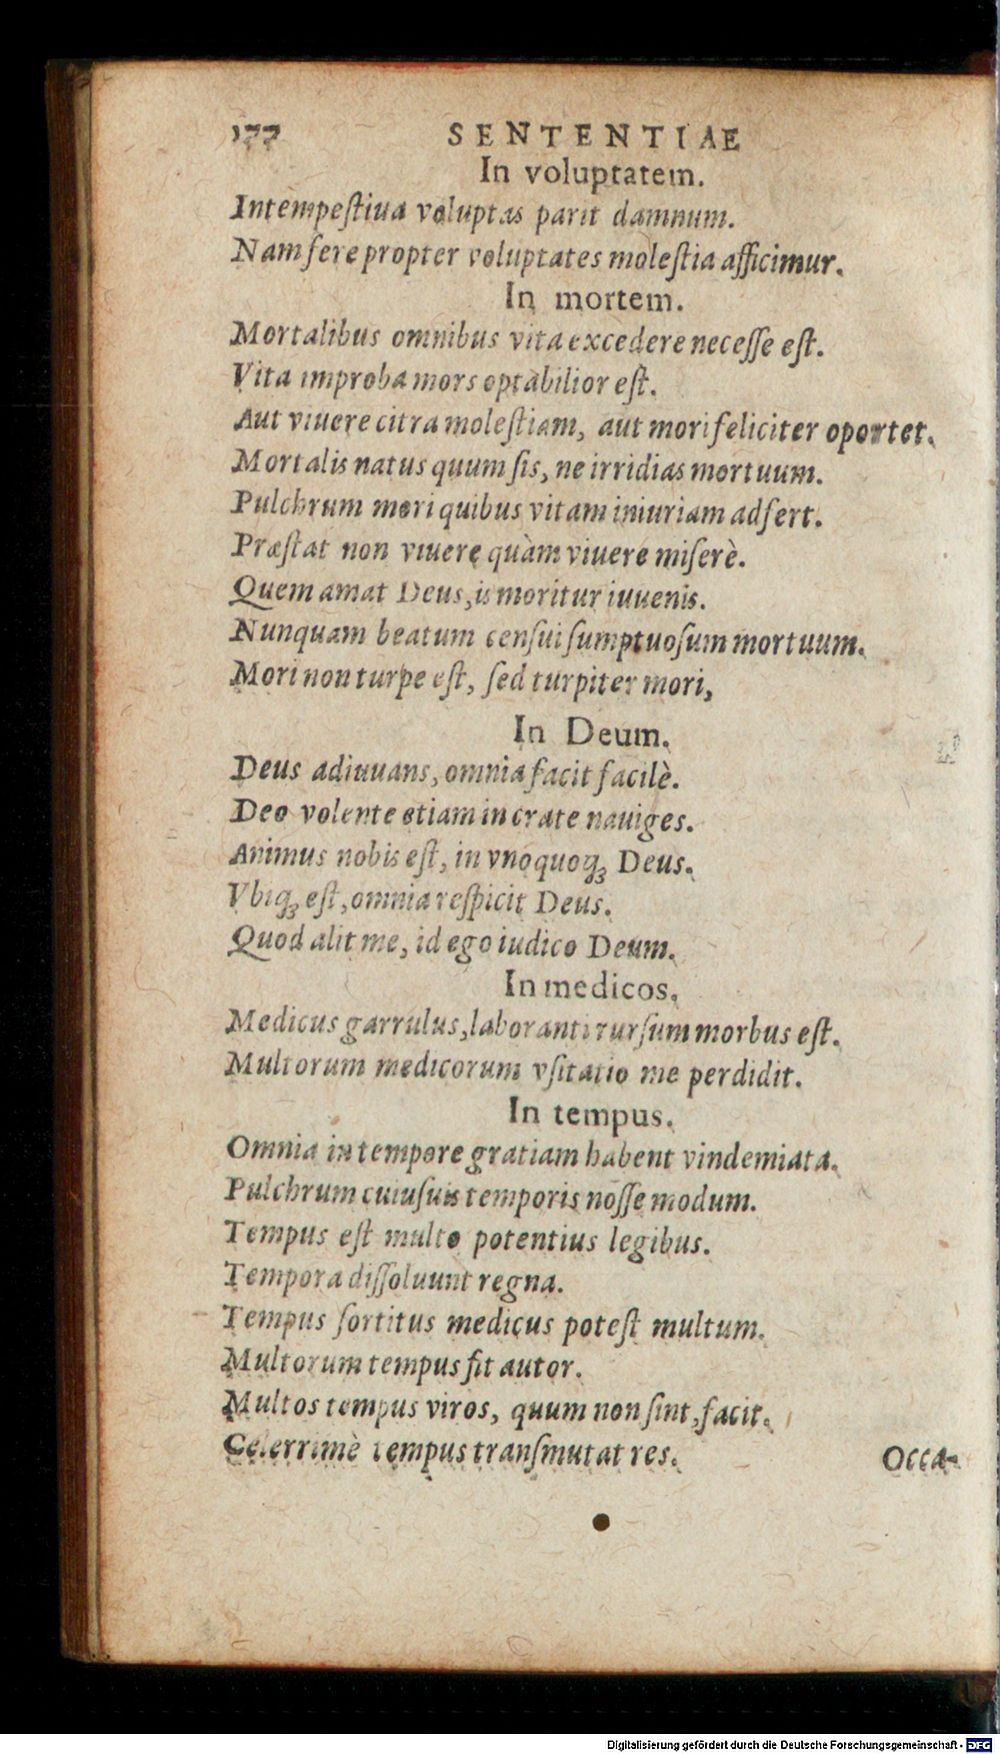 177 SENTENTIAE
In voluptatem.
Intempeſtiua voluptas parit damnum.
Nam fere propter voluptates moleſtia afficimur.
In mortem.
Mortalibus omnibus vita excedere neceſſe eſt.
Vita improba mors optabilior eſt.
Aut viuere citra moleſtiam, aut mori feliciter oportet.
Mortalis natus quum ſis, ne irridias mortuum.
Pulchrum mori quibus vitam iniuriam adfert.
Præſtat non viuere quàm viuere miſerè.
Quem amat Deus, is moritur iuuenis.
Nunquam beatum cenſui ſumptuoſum mortuum.
Mori non turpe eſt, ſed turpiter mori,
In Deum.
Deus adiuuans, omnia facit facilè.
Deo volente etiam in crate nauiges.
Animus nobis eſt, in vnoquoqꝫ Deus.
Vbiqꝫ eſt, omnia reſpicit Deus.
Quod alit me, id ego iudico Deum.
In medicos.
Medicus garrulus, laboranti rurſum morbus eſt.
Multorum medicorum vſitatio me perdidit.
In tempus.
Omnia in tempore gratiam habent vindemiata.
Pulchrum cuiuſuis temporis noſſe modum.
Tempus eſt multo potentius legibus.
Tempora diſſoluunt regna.
Tempus ſortitus medicus poteſt multum.
Multorum tempus fit autor.
Multos tempus viros, quum non ſint, facit.
Celerrimè tempus tranſmutat res.
Occa-
Digitalisierung gefördert durch die Deutsche Forschungsgemeinschaft - DFG